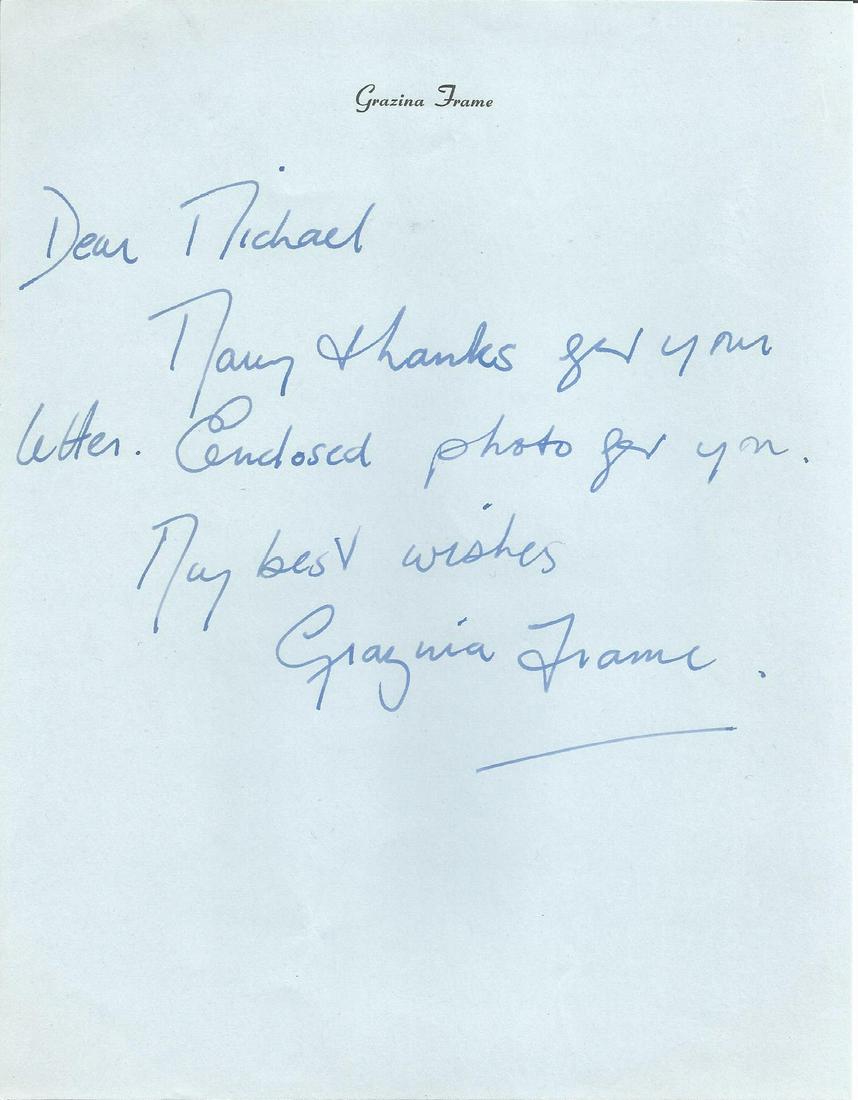 Grazina Frame
Dear Michael
Many thanks for your
letter. Enclosed photo for you.
My best wishes
Grazina Frame.